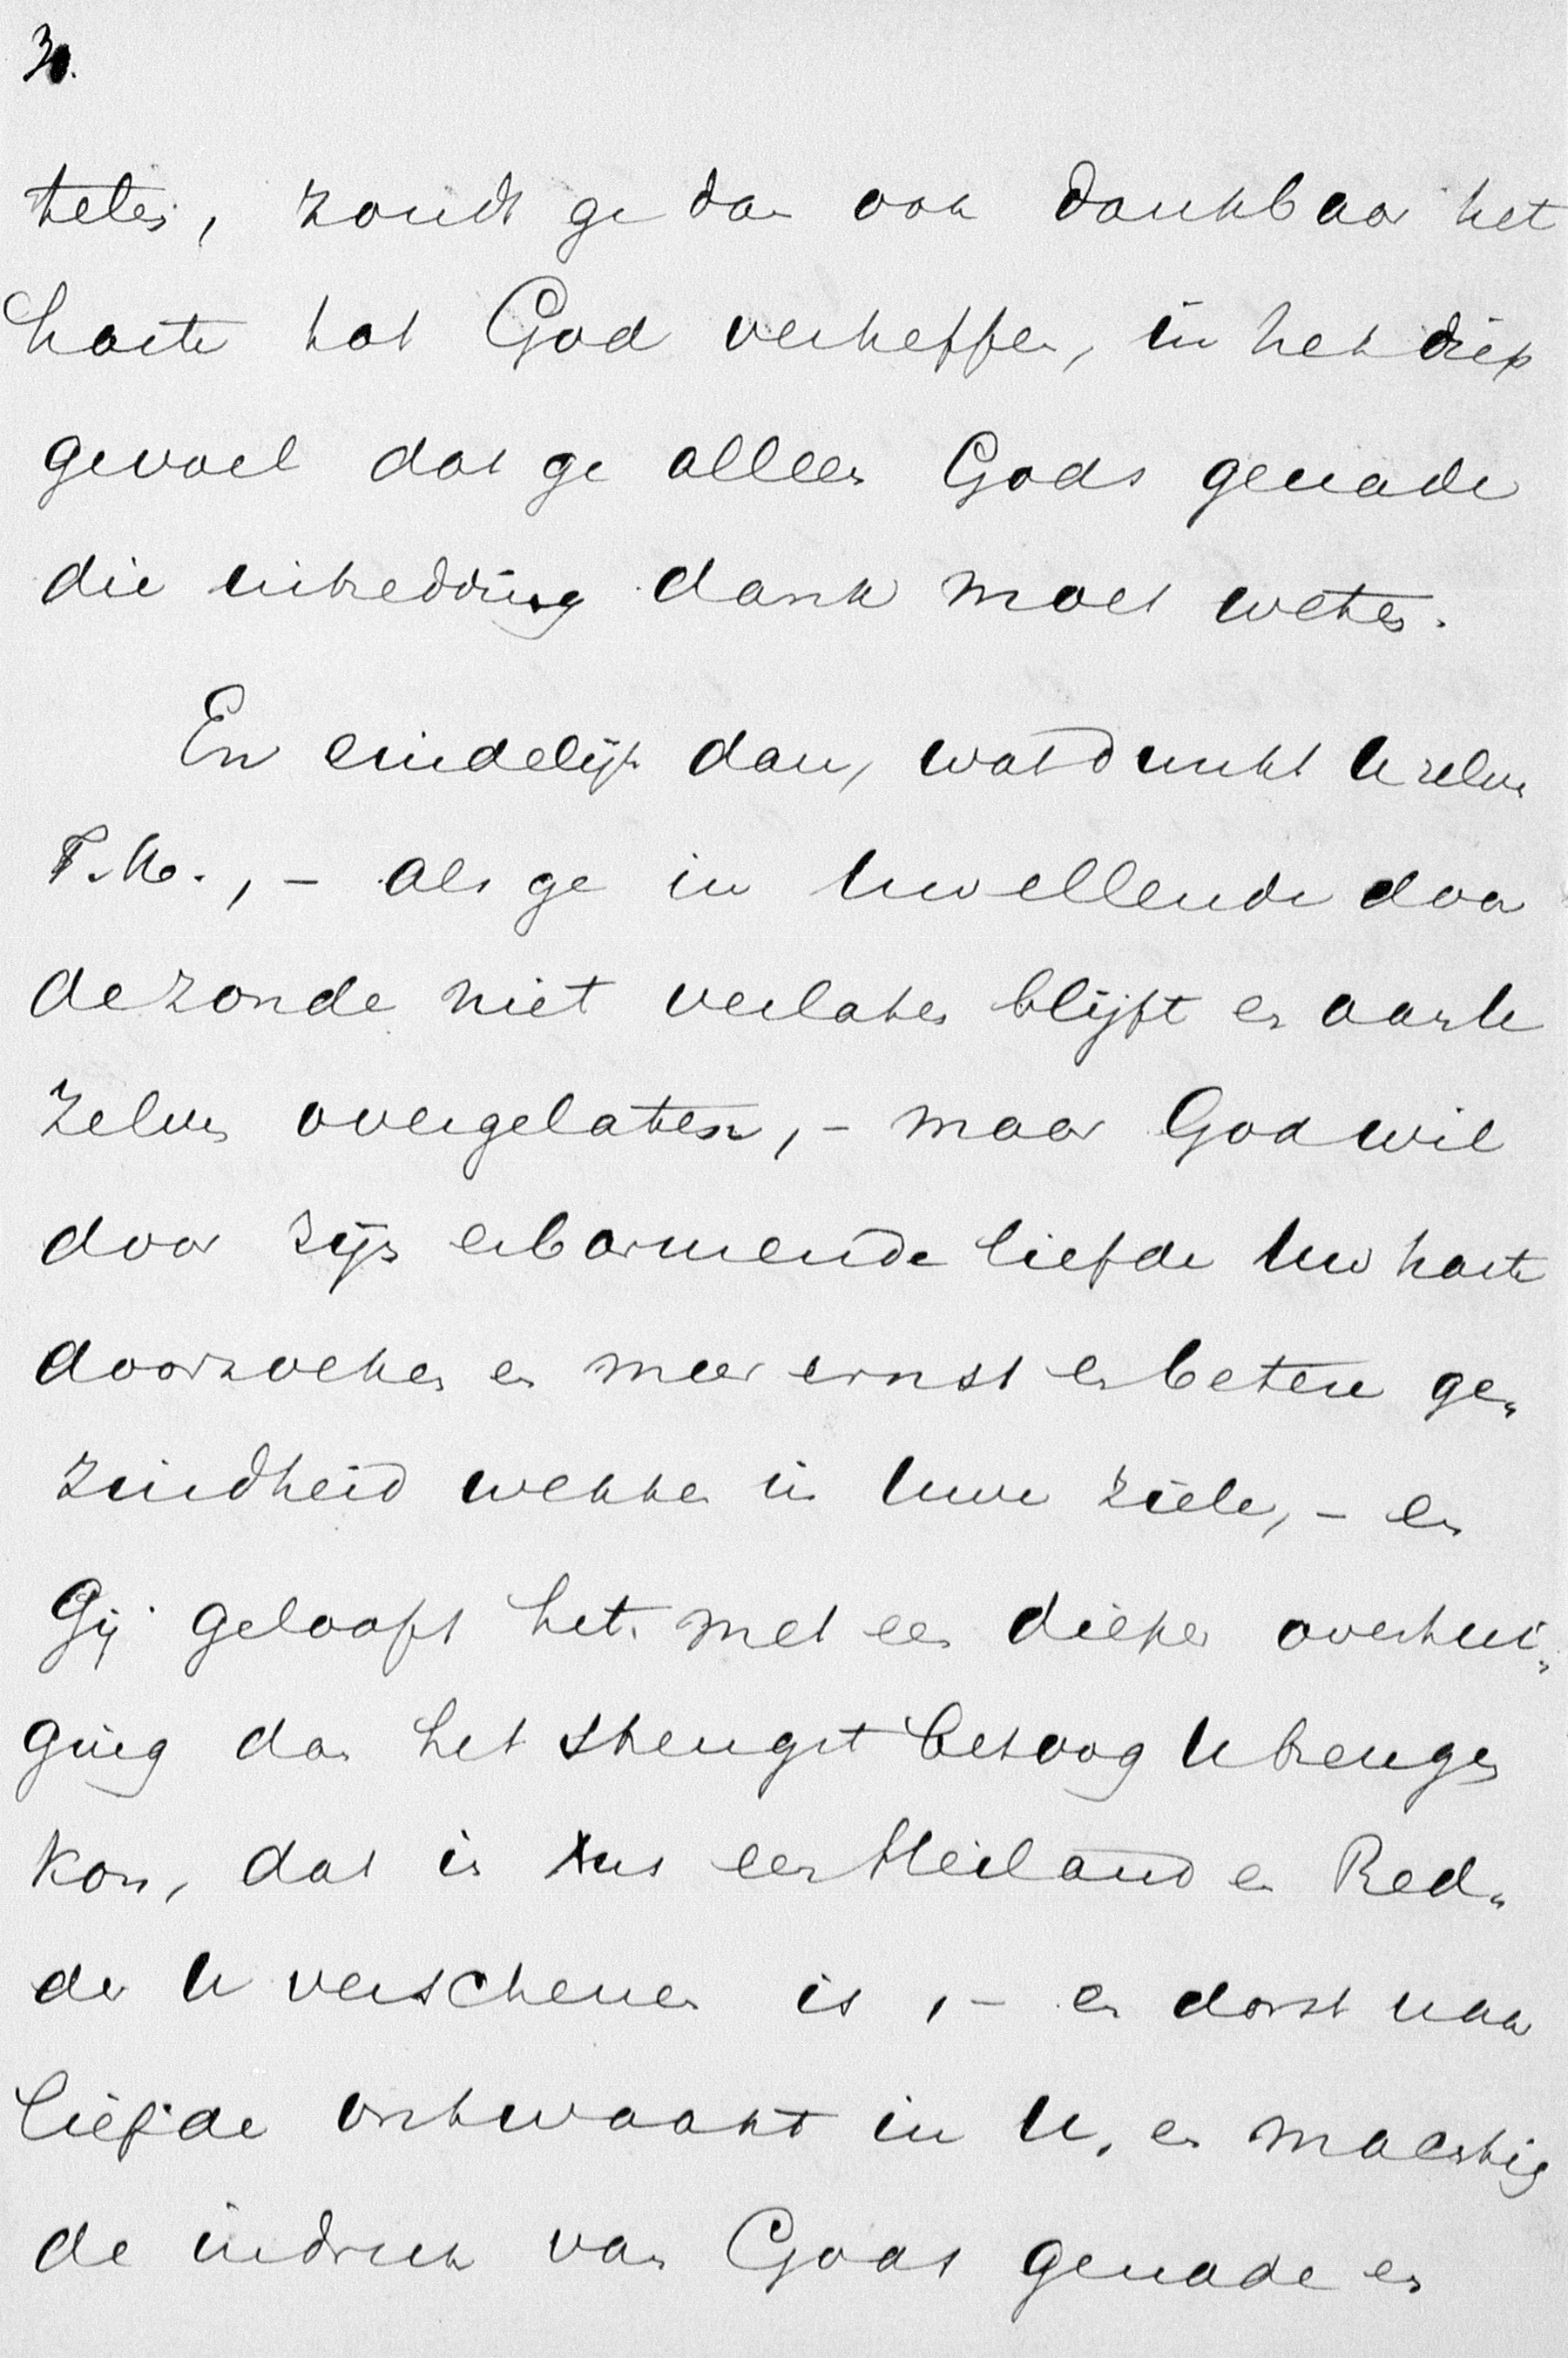 30.
teten, zoudt ge dan ook dankbaar het
harte tot God verheffen, in het diep
gevoel dat ge alleen Gods genade
die uitredding dank moet weten.
En eindelijk dan, wat dunkt U zelven
T. M., – als ge in Uw ellende door
de zonde niet verlaten blijft en aan U
zelven overgelaten, – maar God wil
door zijn erbarmende liefde Uw harte
doorzoeken en meer ernst en betere ge„
zindheid wekken in Uwe ziele, – en
Gij gelooft het met een dieper overtui„
ging dan het strengst betoog U brengen
kon, dat in een Heiland en Red„
der U verschenen is, – en dorst naar
liefde ontwaakt in U, en machtig
de indruk van Gods genade en